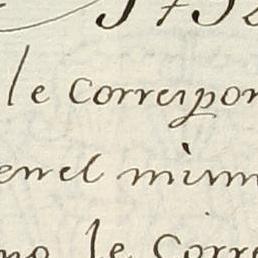 le correspon
enel mism
mo le corre